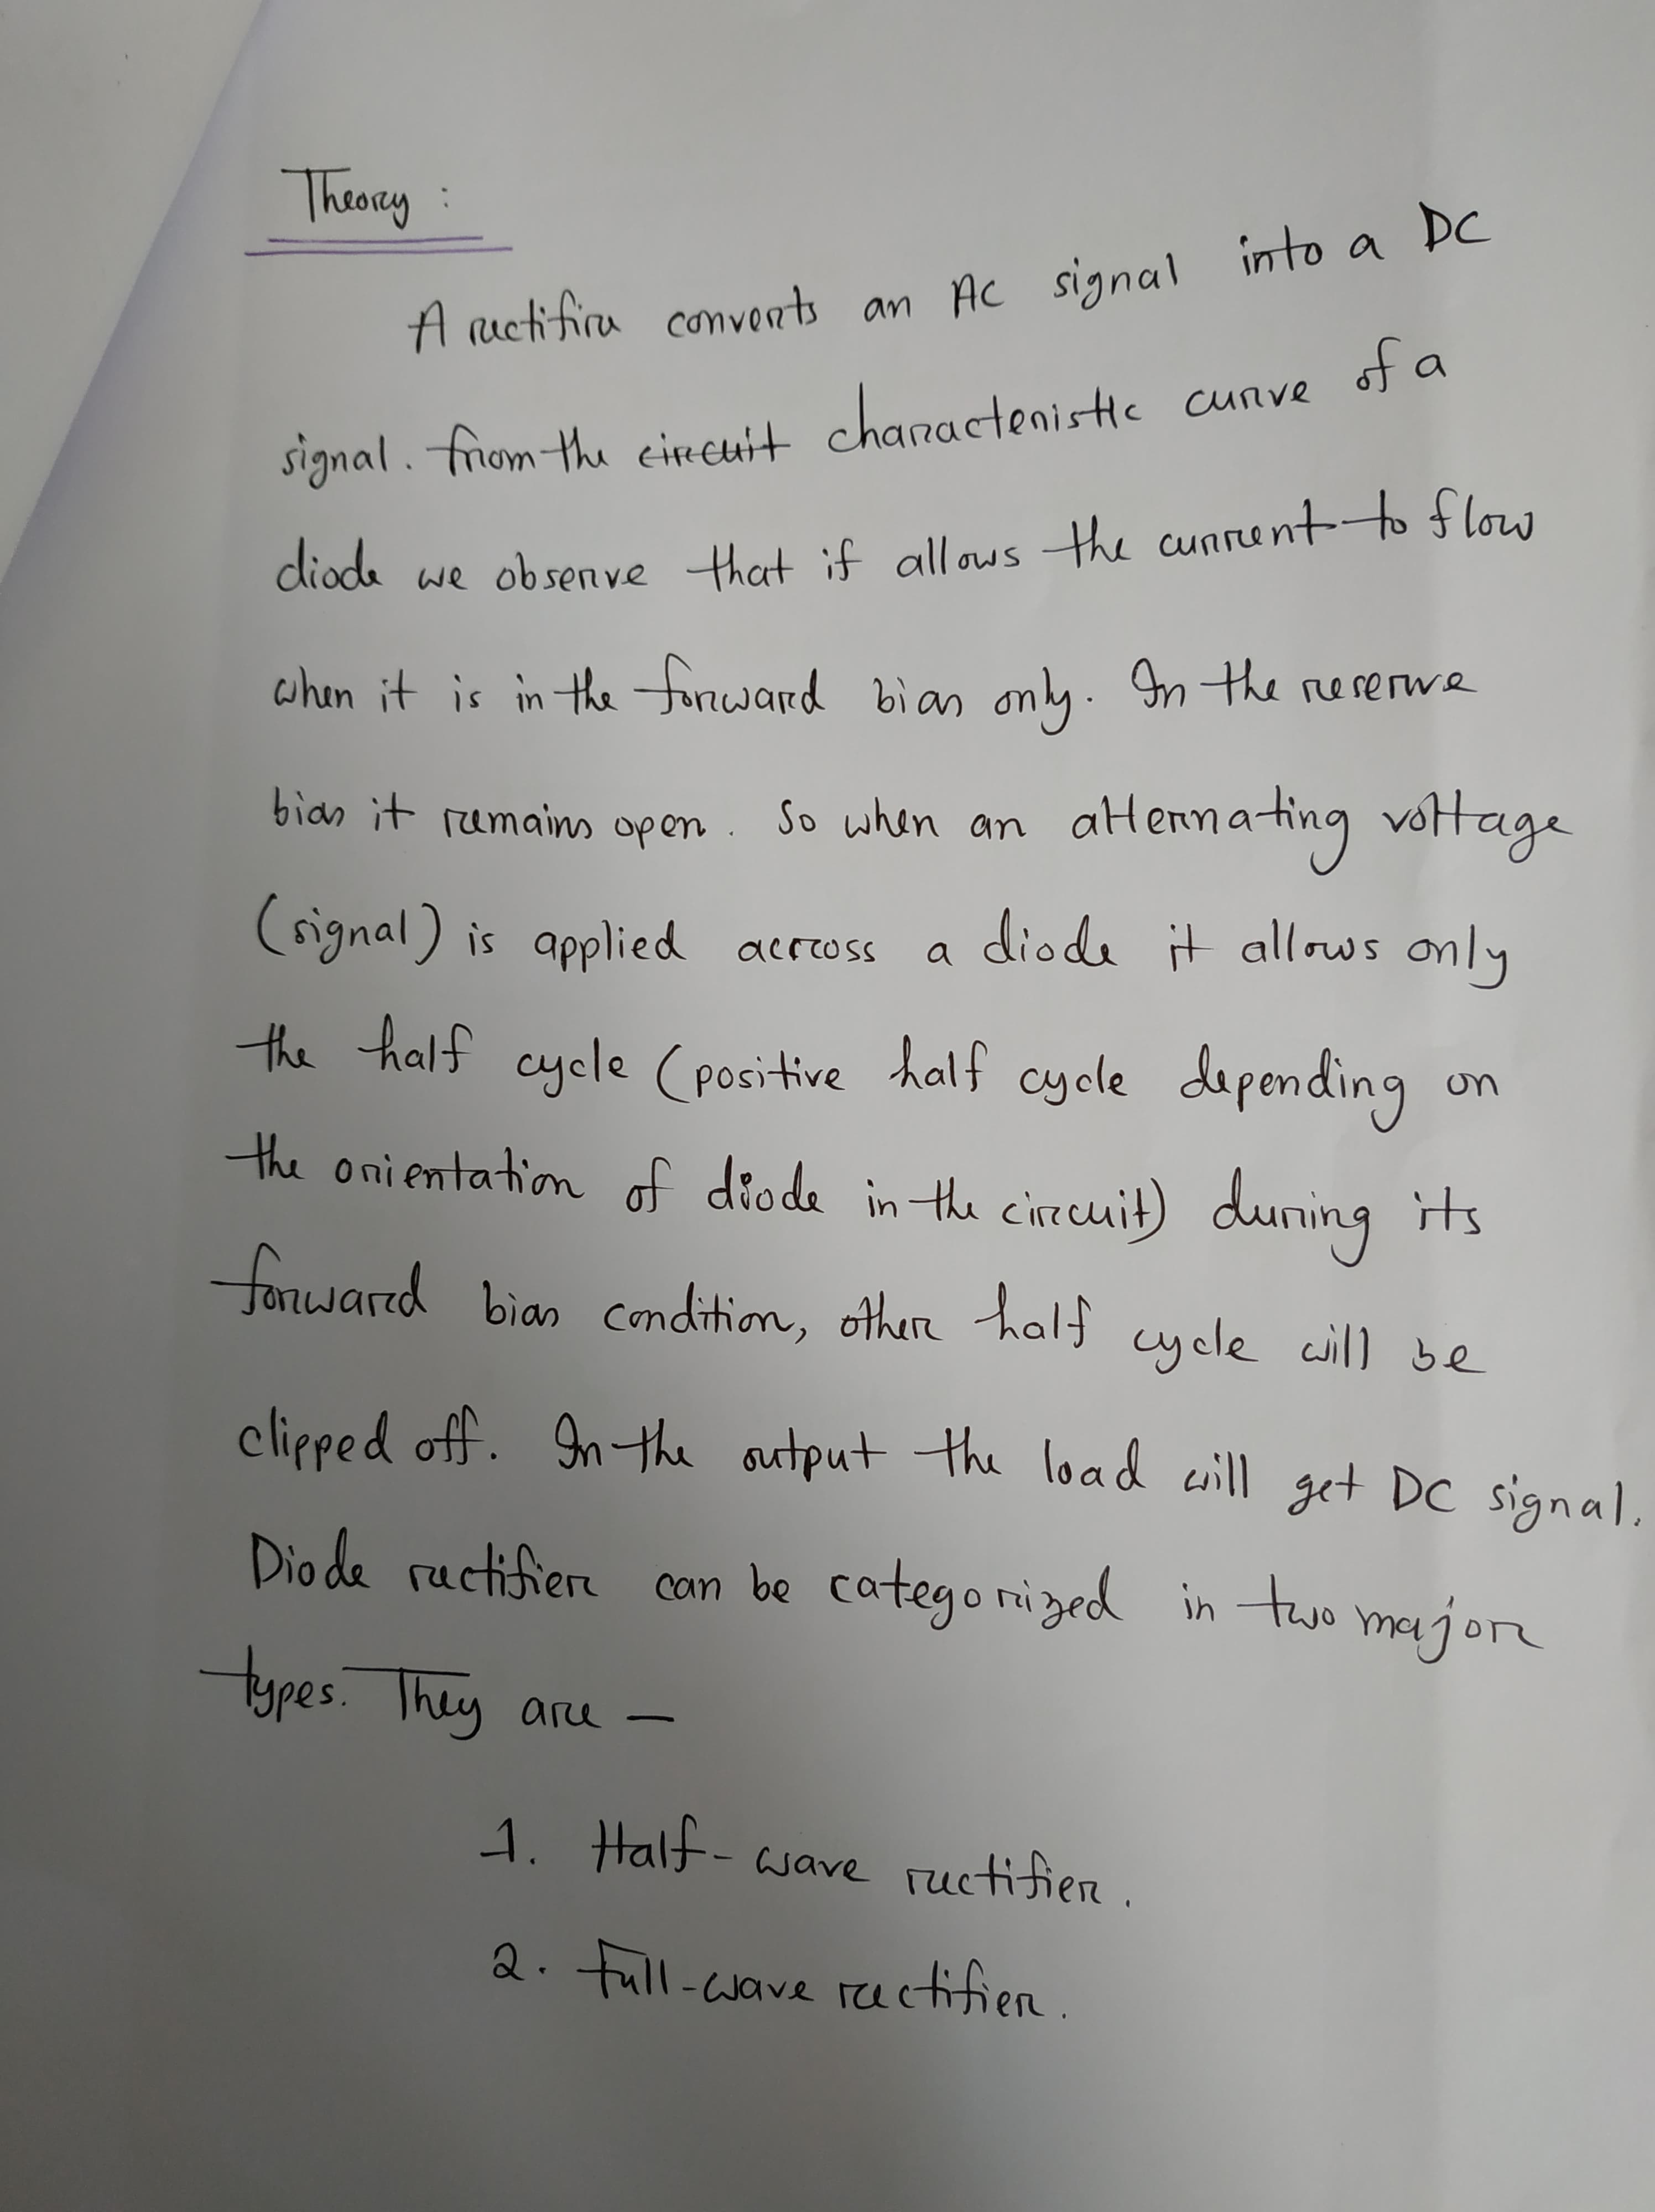 Theory :
A rectifire converts an AC signal into a DC
signal. from the circuit characteristic curve of a
diode we observe that if allows the current to flow
when it is in the forward bias only. In the reserve
bias it remains open. So when an alternating voltage
(signal) is applied across a diode it allows only
the half cycle (positive half cycle depending on
the orientation of diode in the circuit) during its
forward bias condition, other half cycle will be
clipped off. In the output the load will get DC signal.
Diode rectifier can be categorized in two major
types. They are —
1. Half-wave rectifier.
2. Full-wave rectifier.